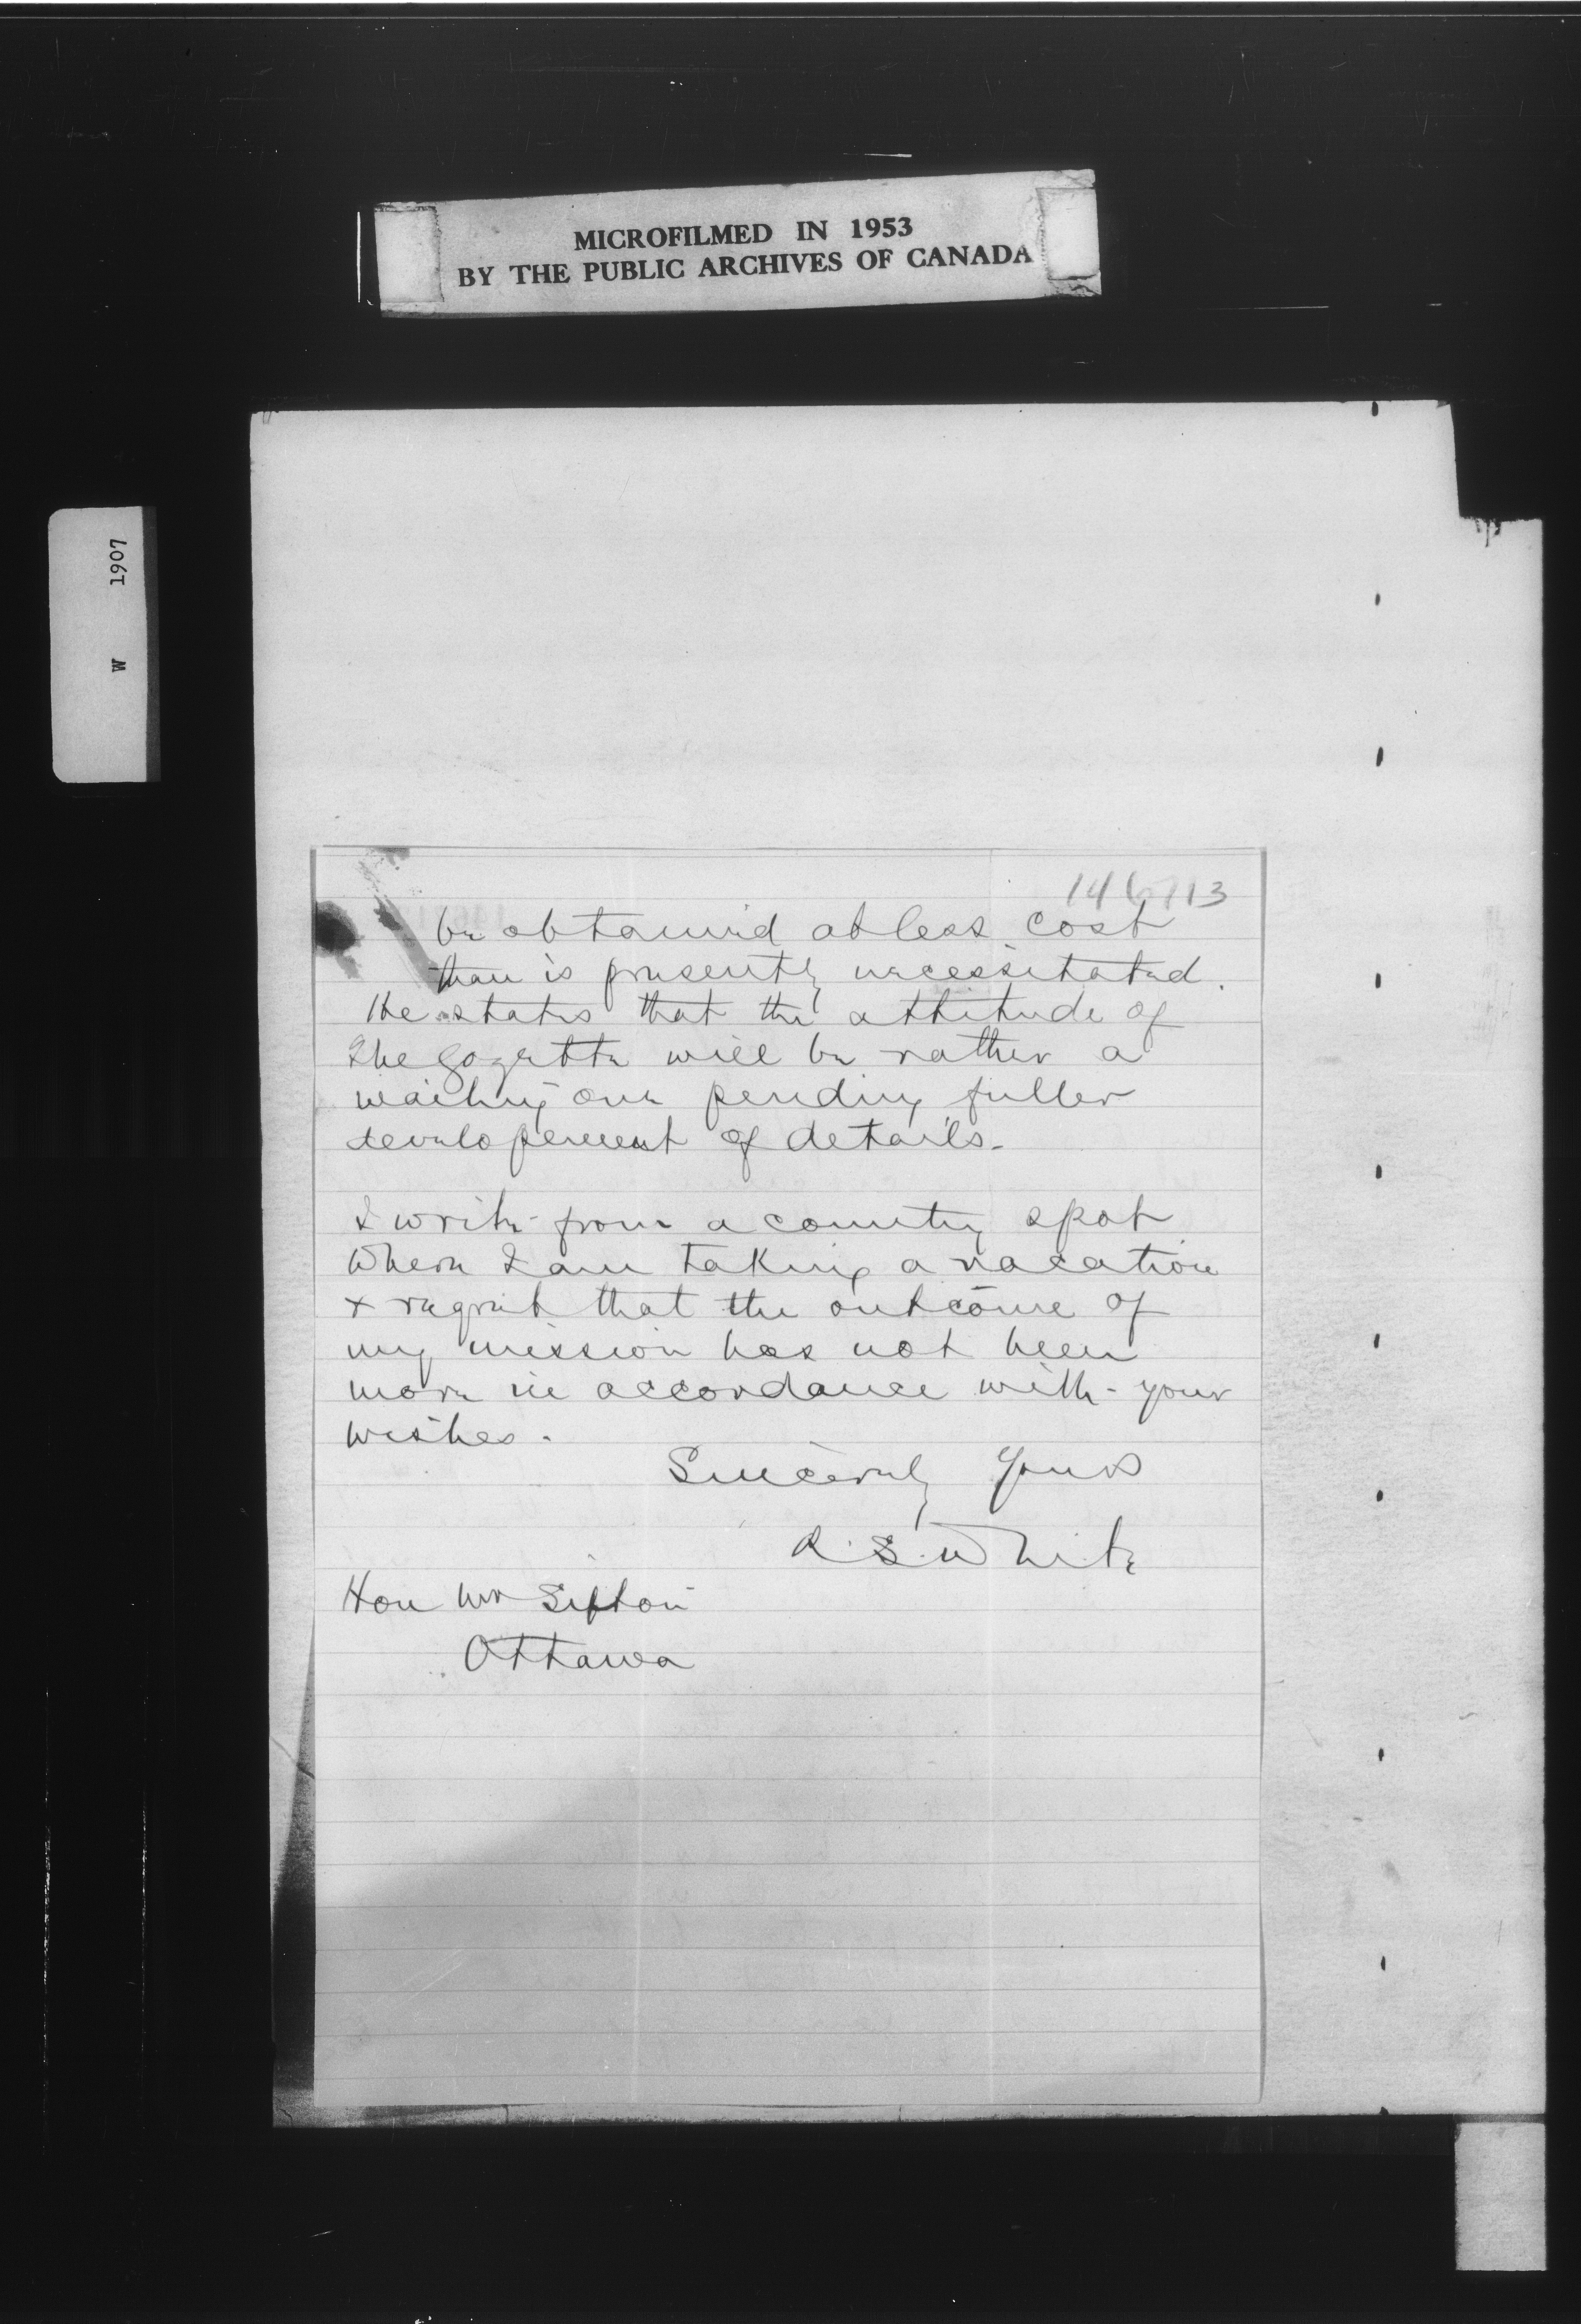 MICROFILMED IN 1953
BY THE PUBLIC ARCHIVES OF CANADA
W 1907
146713
be obtained at less cost
than is presently necessitated.
He states that the attitude of
The Gazette will be rather a
waiting one pending fuller
developement of details.
I write from a country spot
where I am taking a vacation
+ regret that the outcome of
my mission has not been
more in accordance with your
wishes.
Sincerely Yours
R. S. White
Hon Mr Sifton
Ottawa